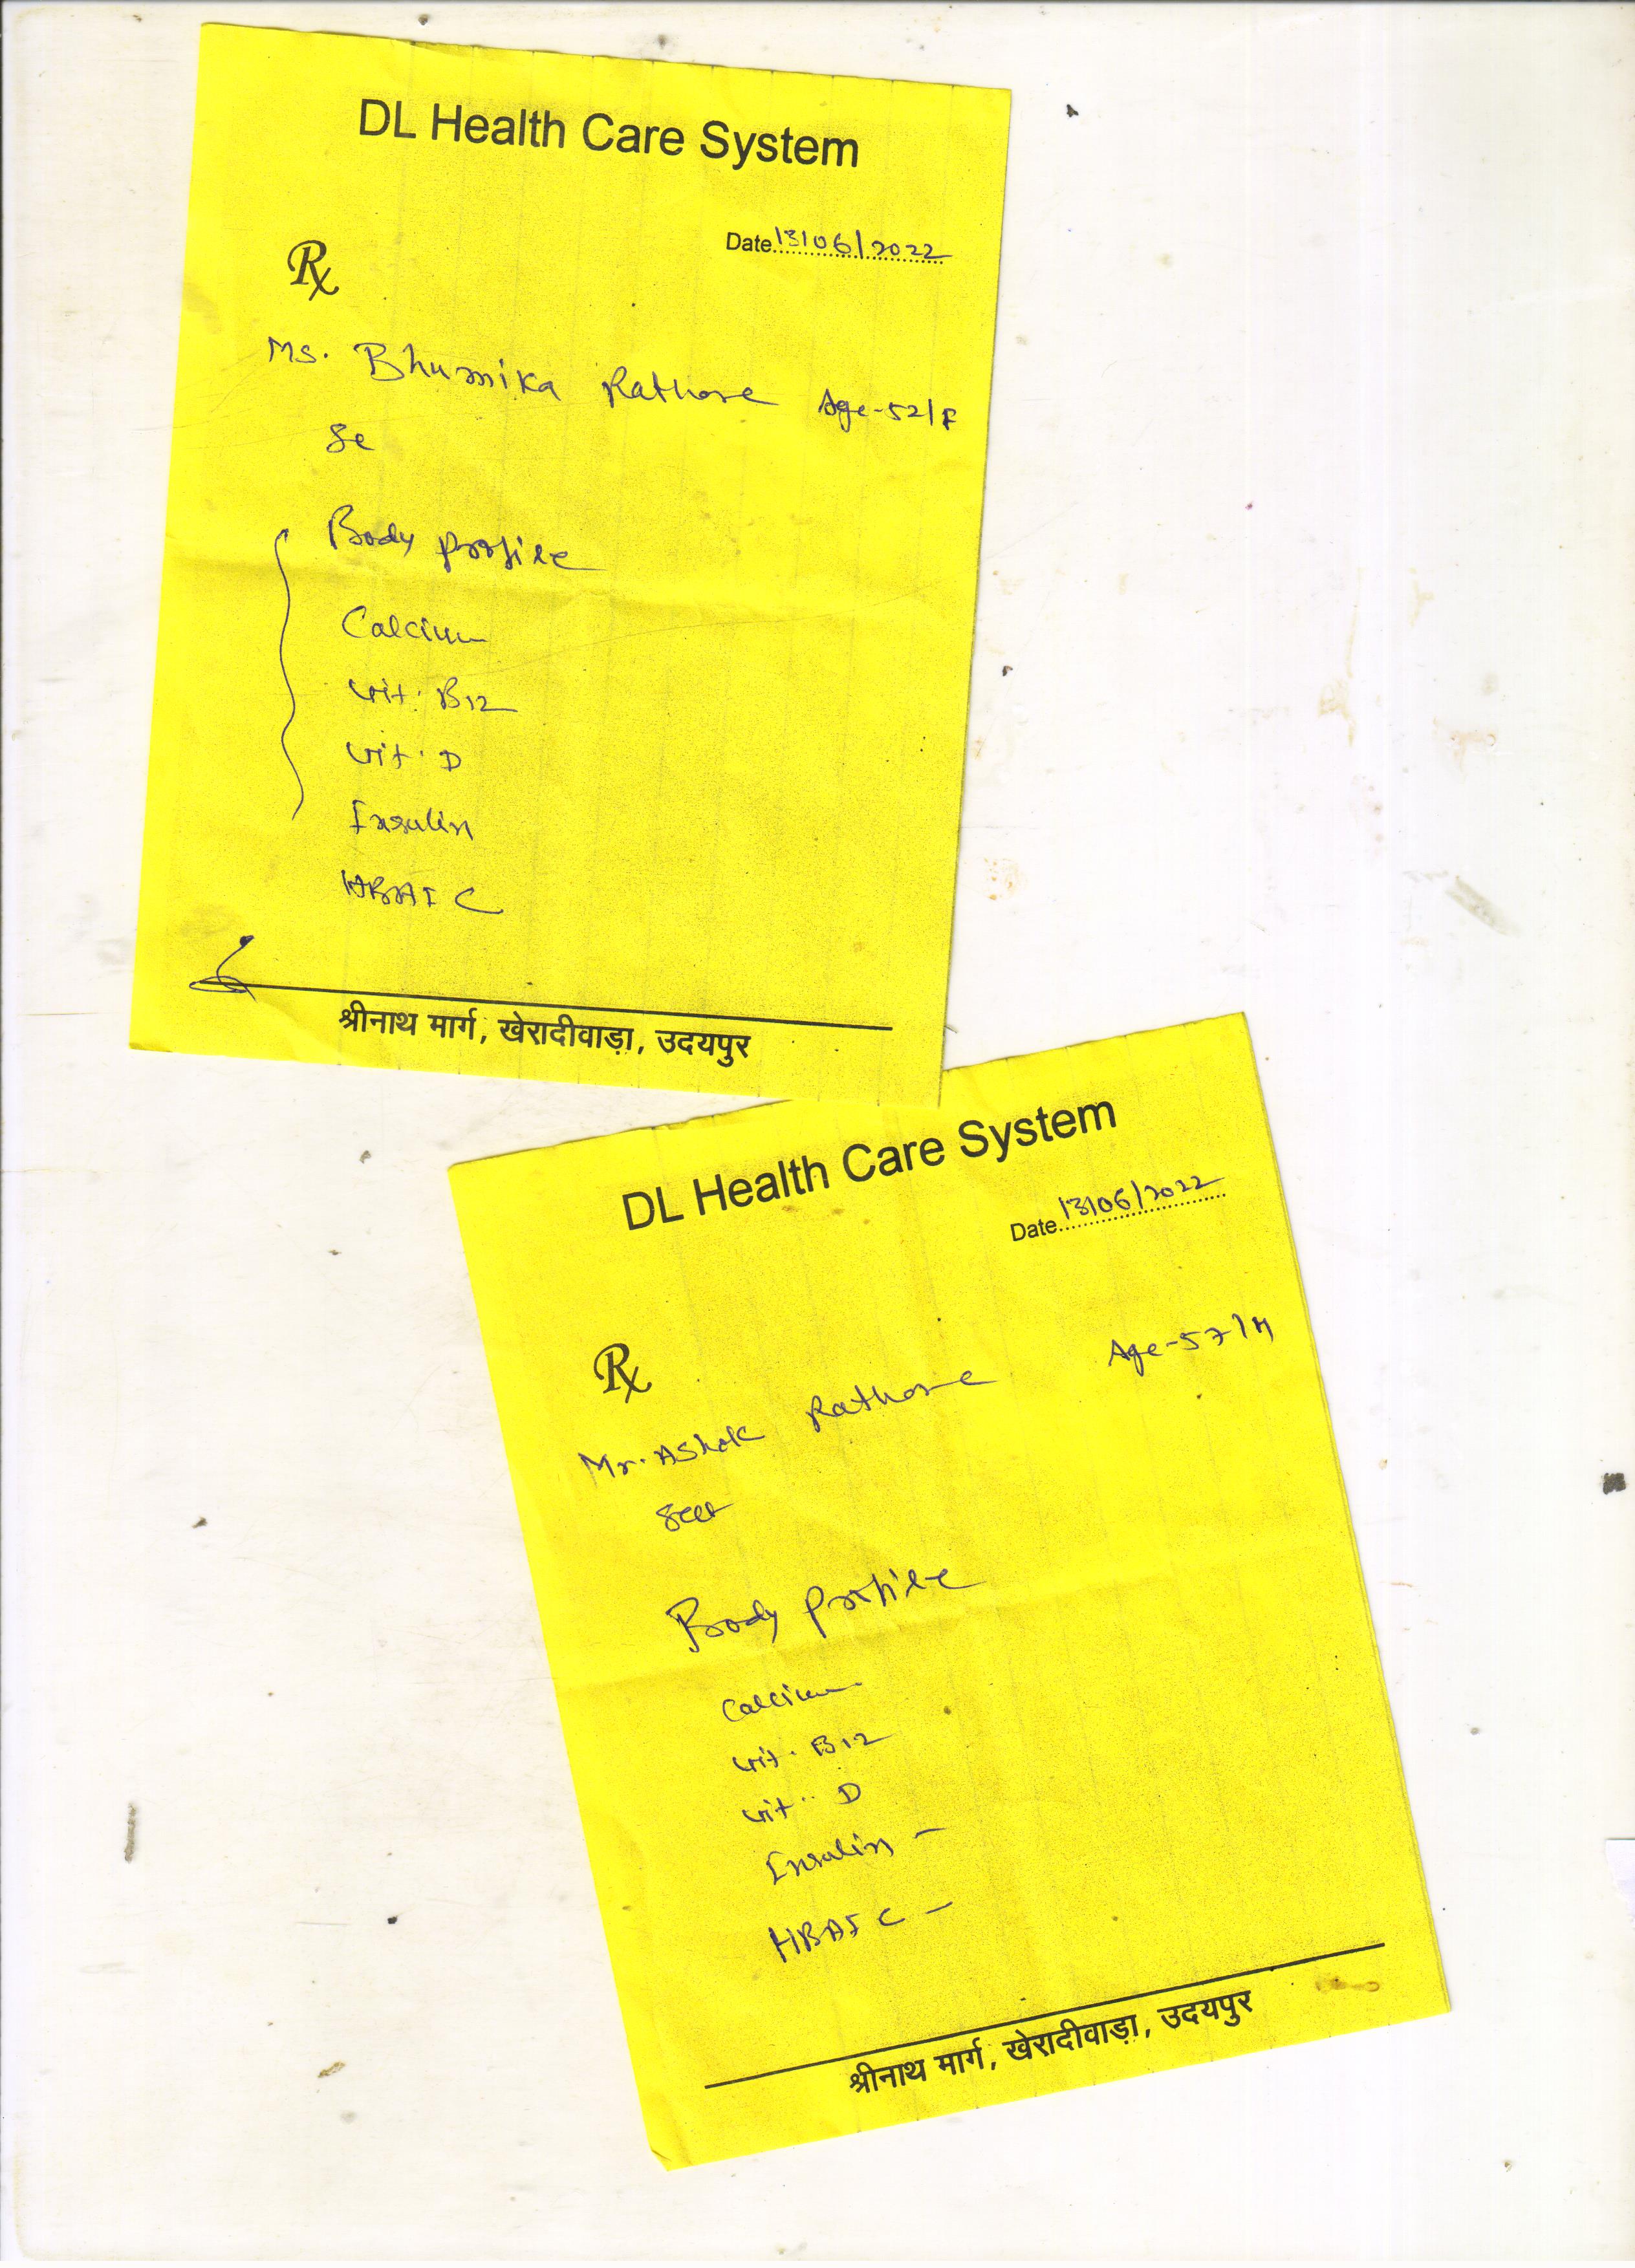 DL Health Care System
Date 13/06/2022
Rx
Ms. Bhumika Rathore Age-52/F
Body profile
Calcium
Vit. B12
Vit. D
Insulin
HBA1C
श्रीनाथ मार्ग, खेरादीवाड़ा, उदयपुर
DL Health Care System
Date 13/06/2022
Rx
Mr. Ashok Rathore Age-57/M
Body profile
Calcium
Vit. B12
Vit. D
Insulin -
HBA1C -
श्रीनाथ मार्ग, खेरादीवाड़ा, उदयपुर